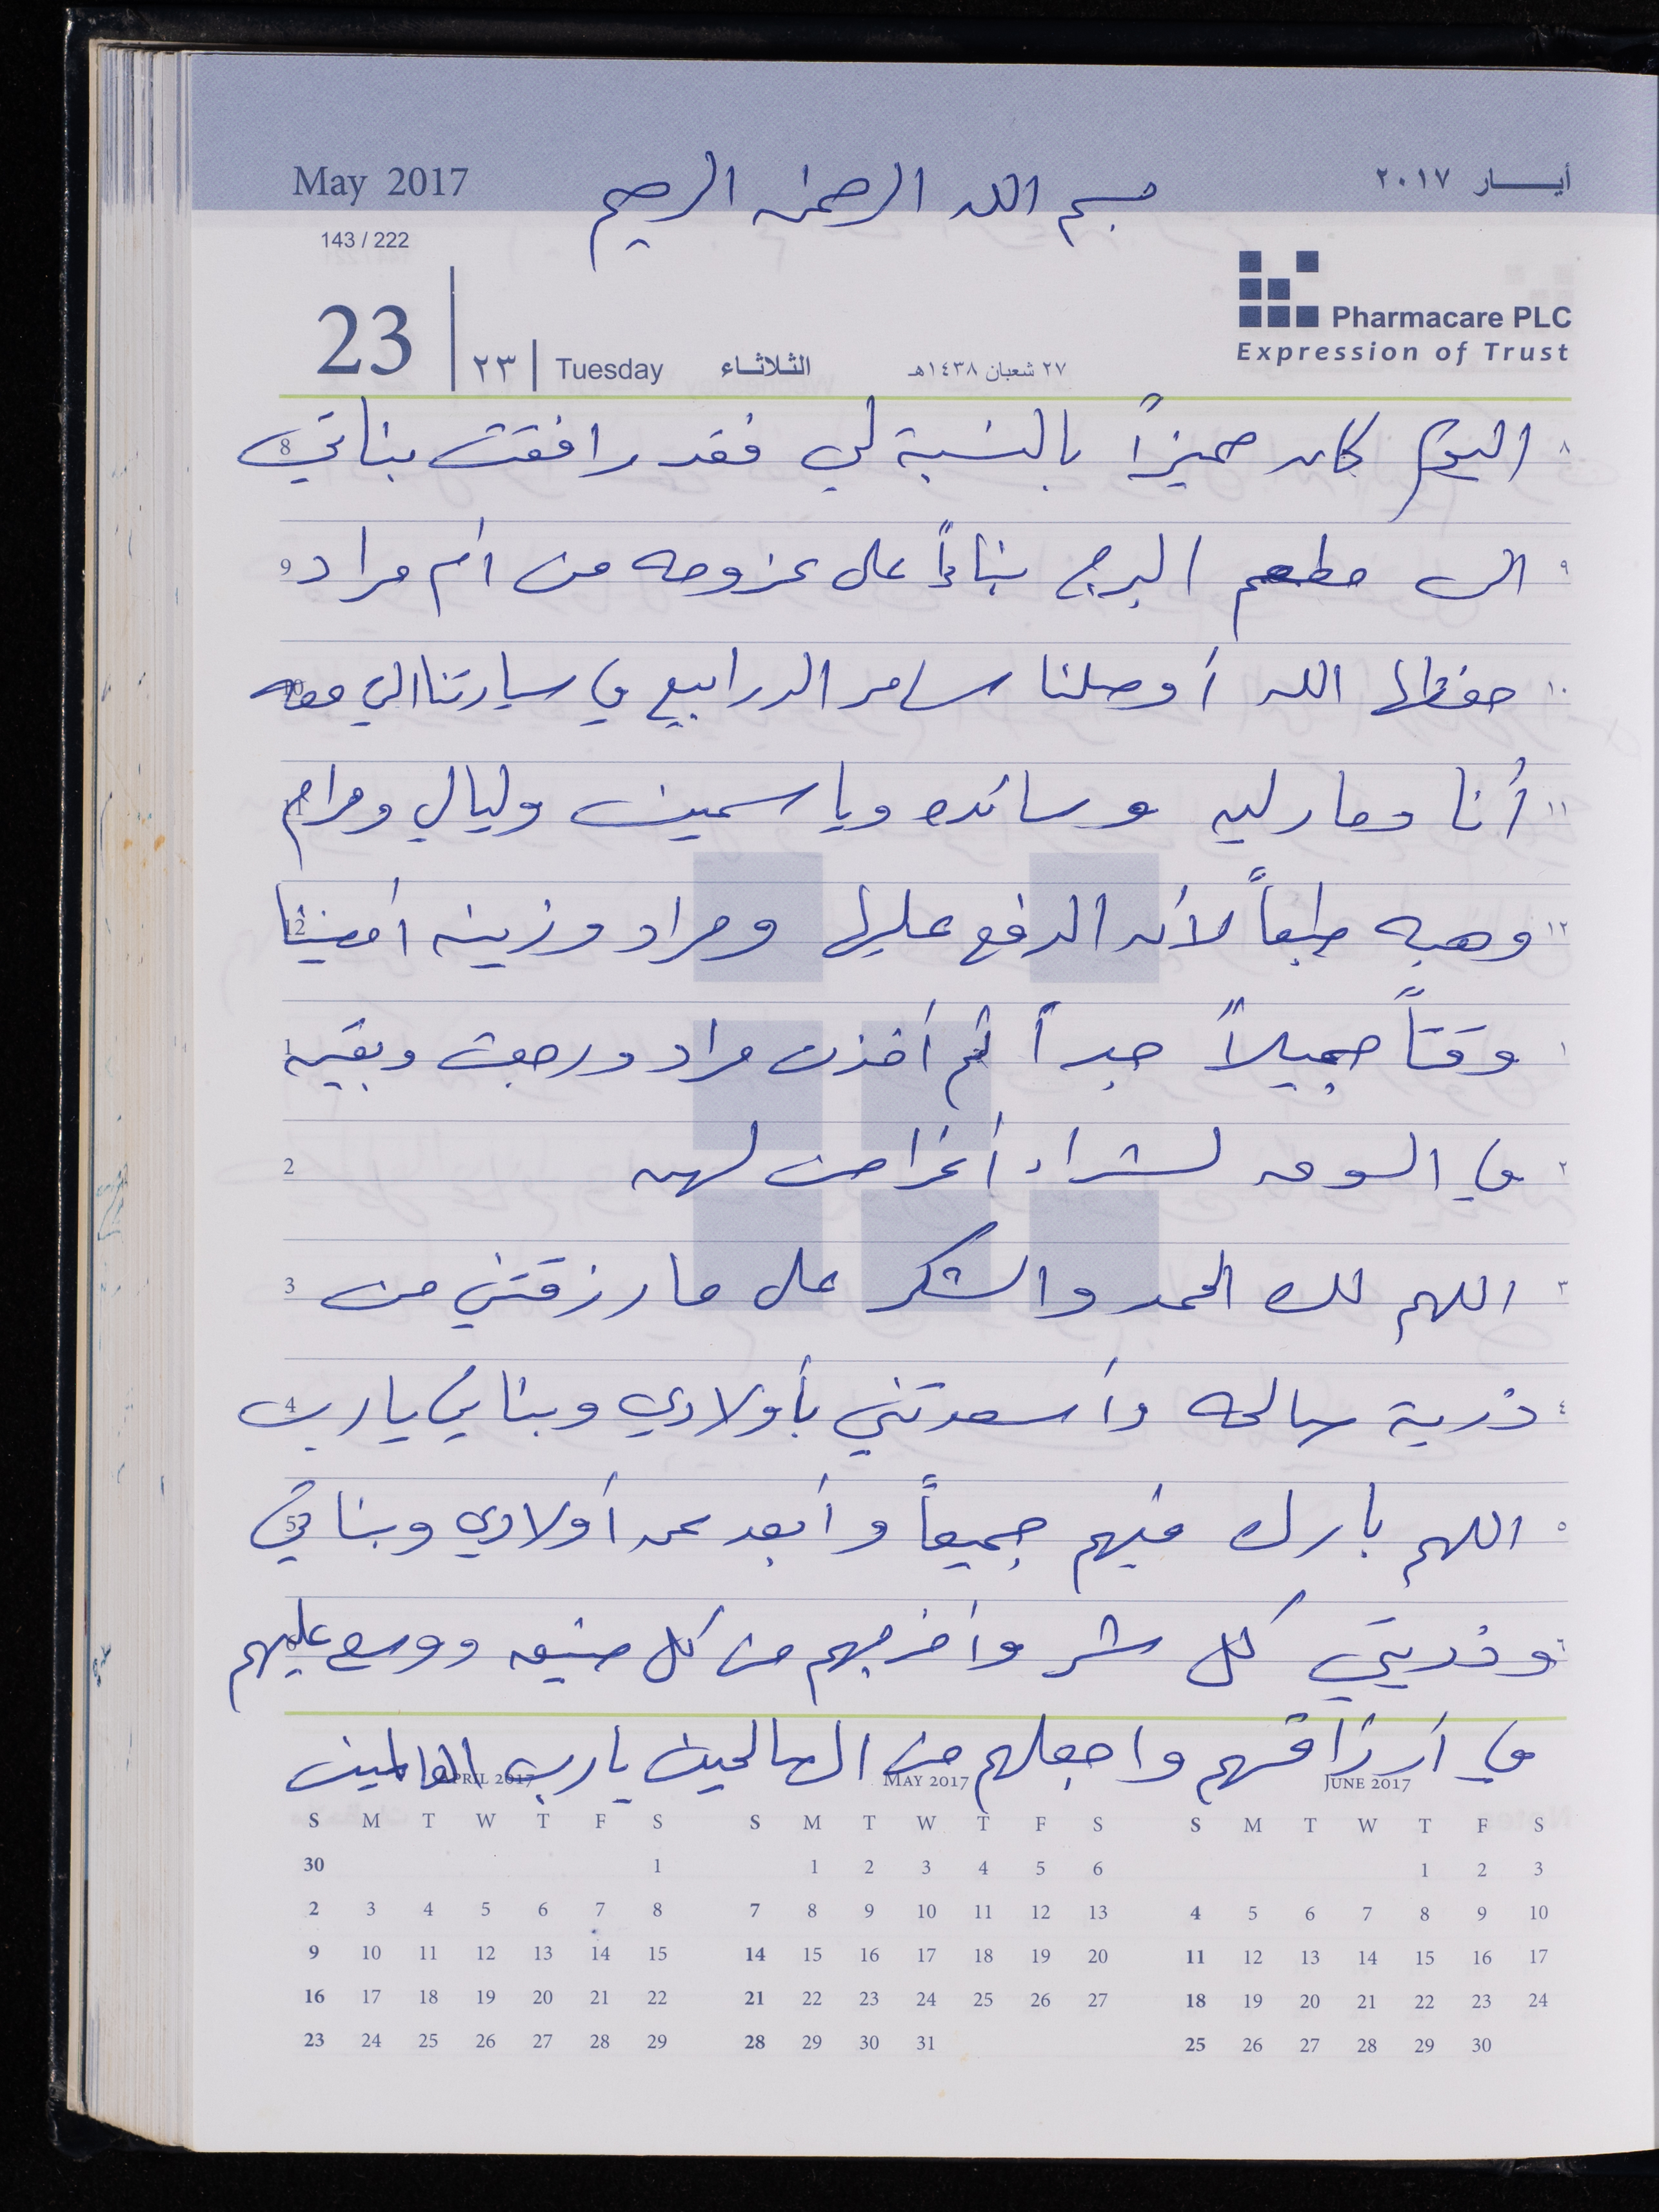 May 2017
بسم الله الرحمن الرحيم
أيـــار ٢٠١٧
143 / 222
Pharmacare PLC
Expression of Trust
23 | ٢٣ | Tuesday الثـلاثـاء ٢٧ شعبان ١٤٣٨هـ
8 اليوم كان مميزاً بالنسبة لي فقد رافقت بناتي ٨
9 الى مطعم البرج بناءاً على عزومه من أم مراد ٩
10 حفظها الله أوصلنا سامر الدرابيع في سيارتنا الي معه ١٠
11 أنا ومارليه وسائده وياسمين وليالي ومرام ١١
12 وهبه طبعاً لأن الدفع عليها ومراد وزينه أمضينا ١٢
1 وقتاً جميلاً جداً ثم أخذت مراد ورجعت وبقيه ١
2 في السوق لشراء أغراض لهن ٢
3 اللهم لك الحمد والشكر على ما رزقتني من ٣
4 ذرية صالحه وأسعدتني بأولادي وبناتي يا رب ٤
5 اللهم بارك فيهم جميعاً وأبعد عن أولادي وبناتي ٥
6 وذريتي كل شر وأخرجهم من كل ضيق ووسع عليهم ٦
في أرزاقهم واجعلهم من الصالحين يارب العالمين
APRIL 2017 MAY 2017 JUNE 2017
S M T W T F S S M T W T F S S M T W T F S
30 1 1 2 3 4 5 6 1 2 3
2 3 4 5 6 7 8 7 8 9 10 11 12 13 4 5 6 7 8 9 10
9 10 11 12 13 14 15 14 15 16 17 18 19 20 11 12 13 14 15 16 17
16 17 18 19 20 21 22 21 22 23 24 25 26 27 18 19 20 21 22 23 24
23 24 25 26 27 28 29 28 29 30 31 25 26 27 28 29 30